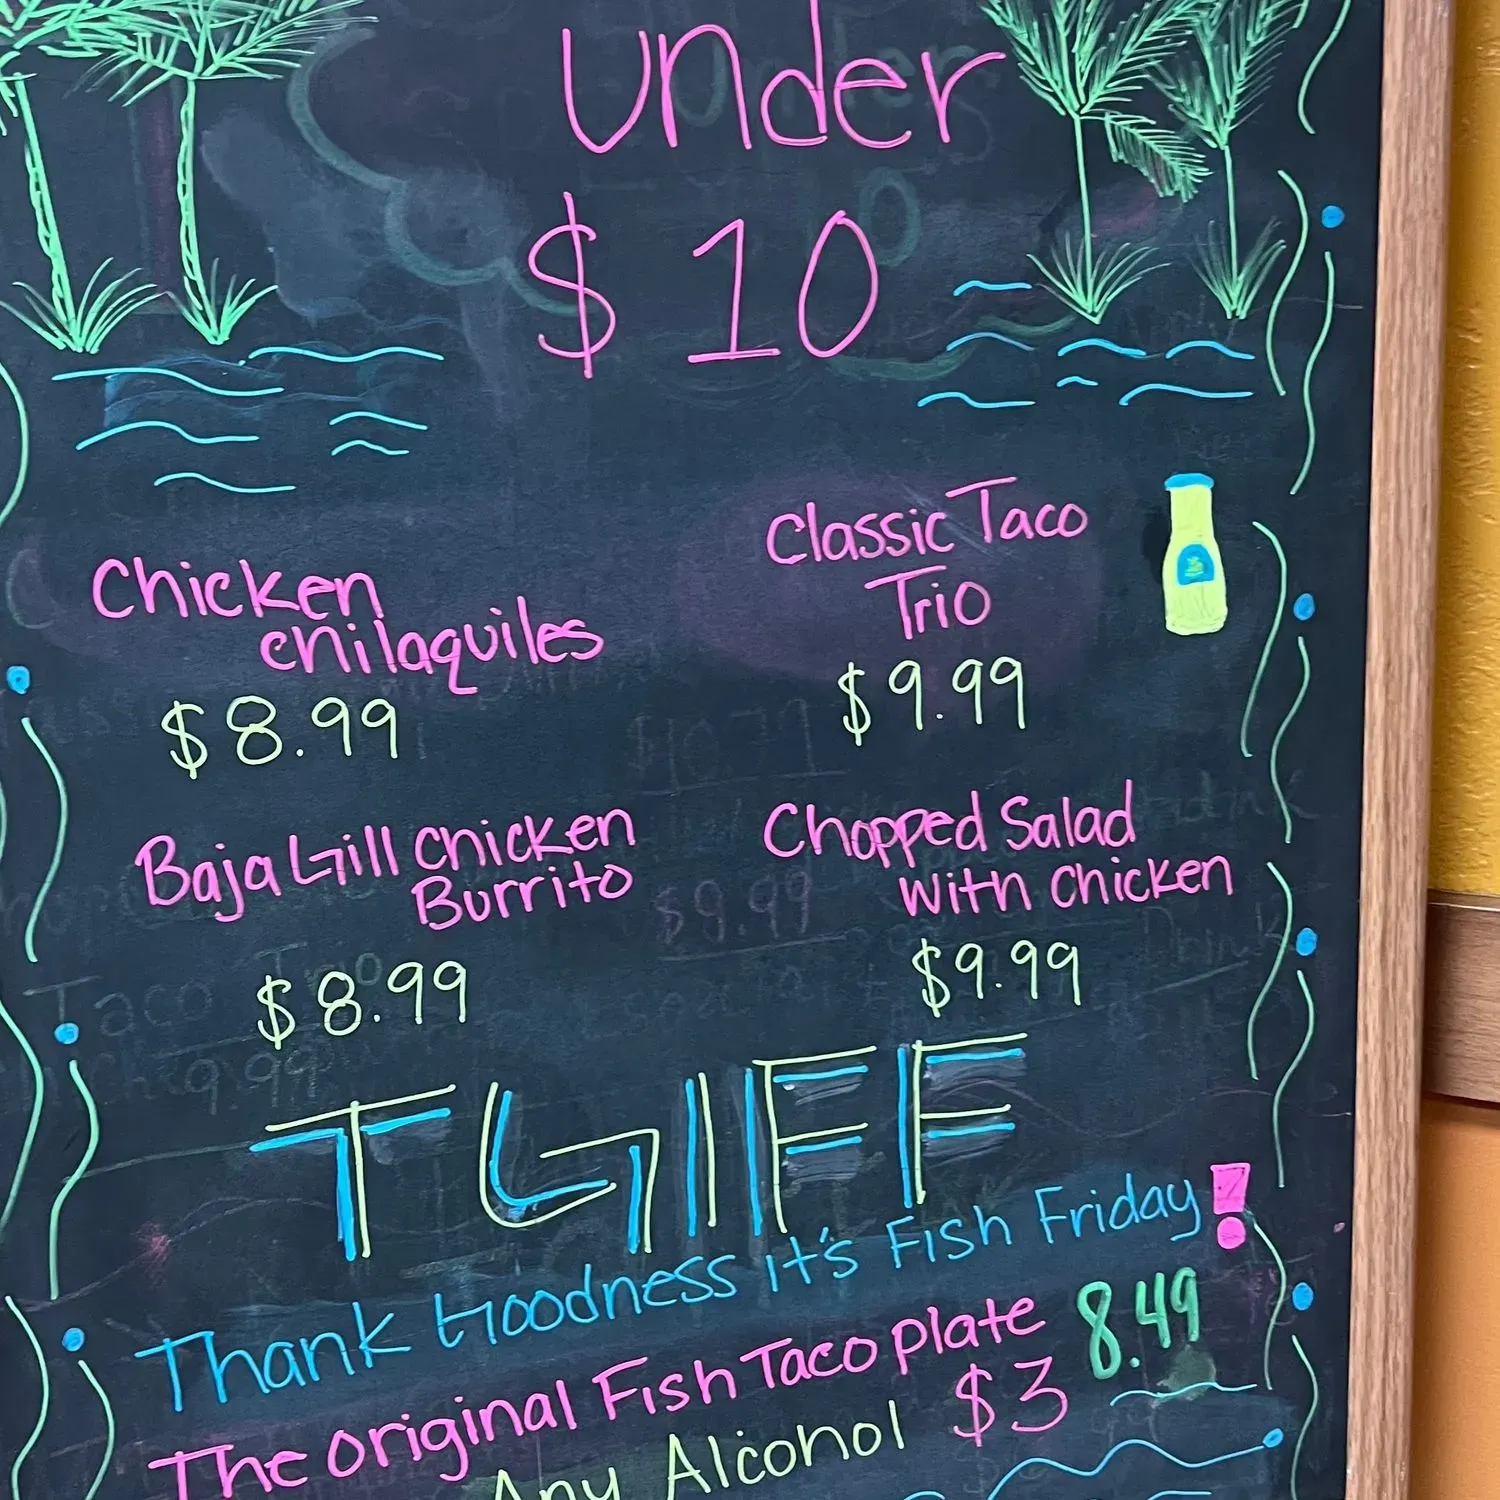 Under
$10
Chicken
chilaquiles
$8.99
Classic Taco
Trio
$9.99
Baja Grill Chicken
Burrito
$8.99
Chopped Salad
with chicken
$9.99
TGIFF
Thank Goodness it's Fish Friday!
The original Fish Taco plate 8.49
Any Alcohol $3